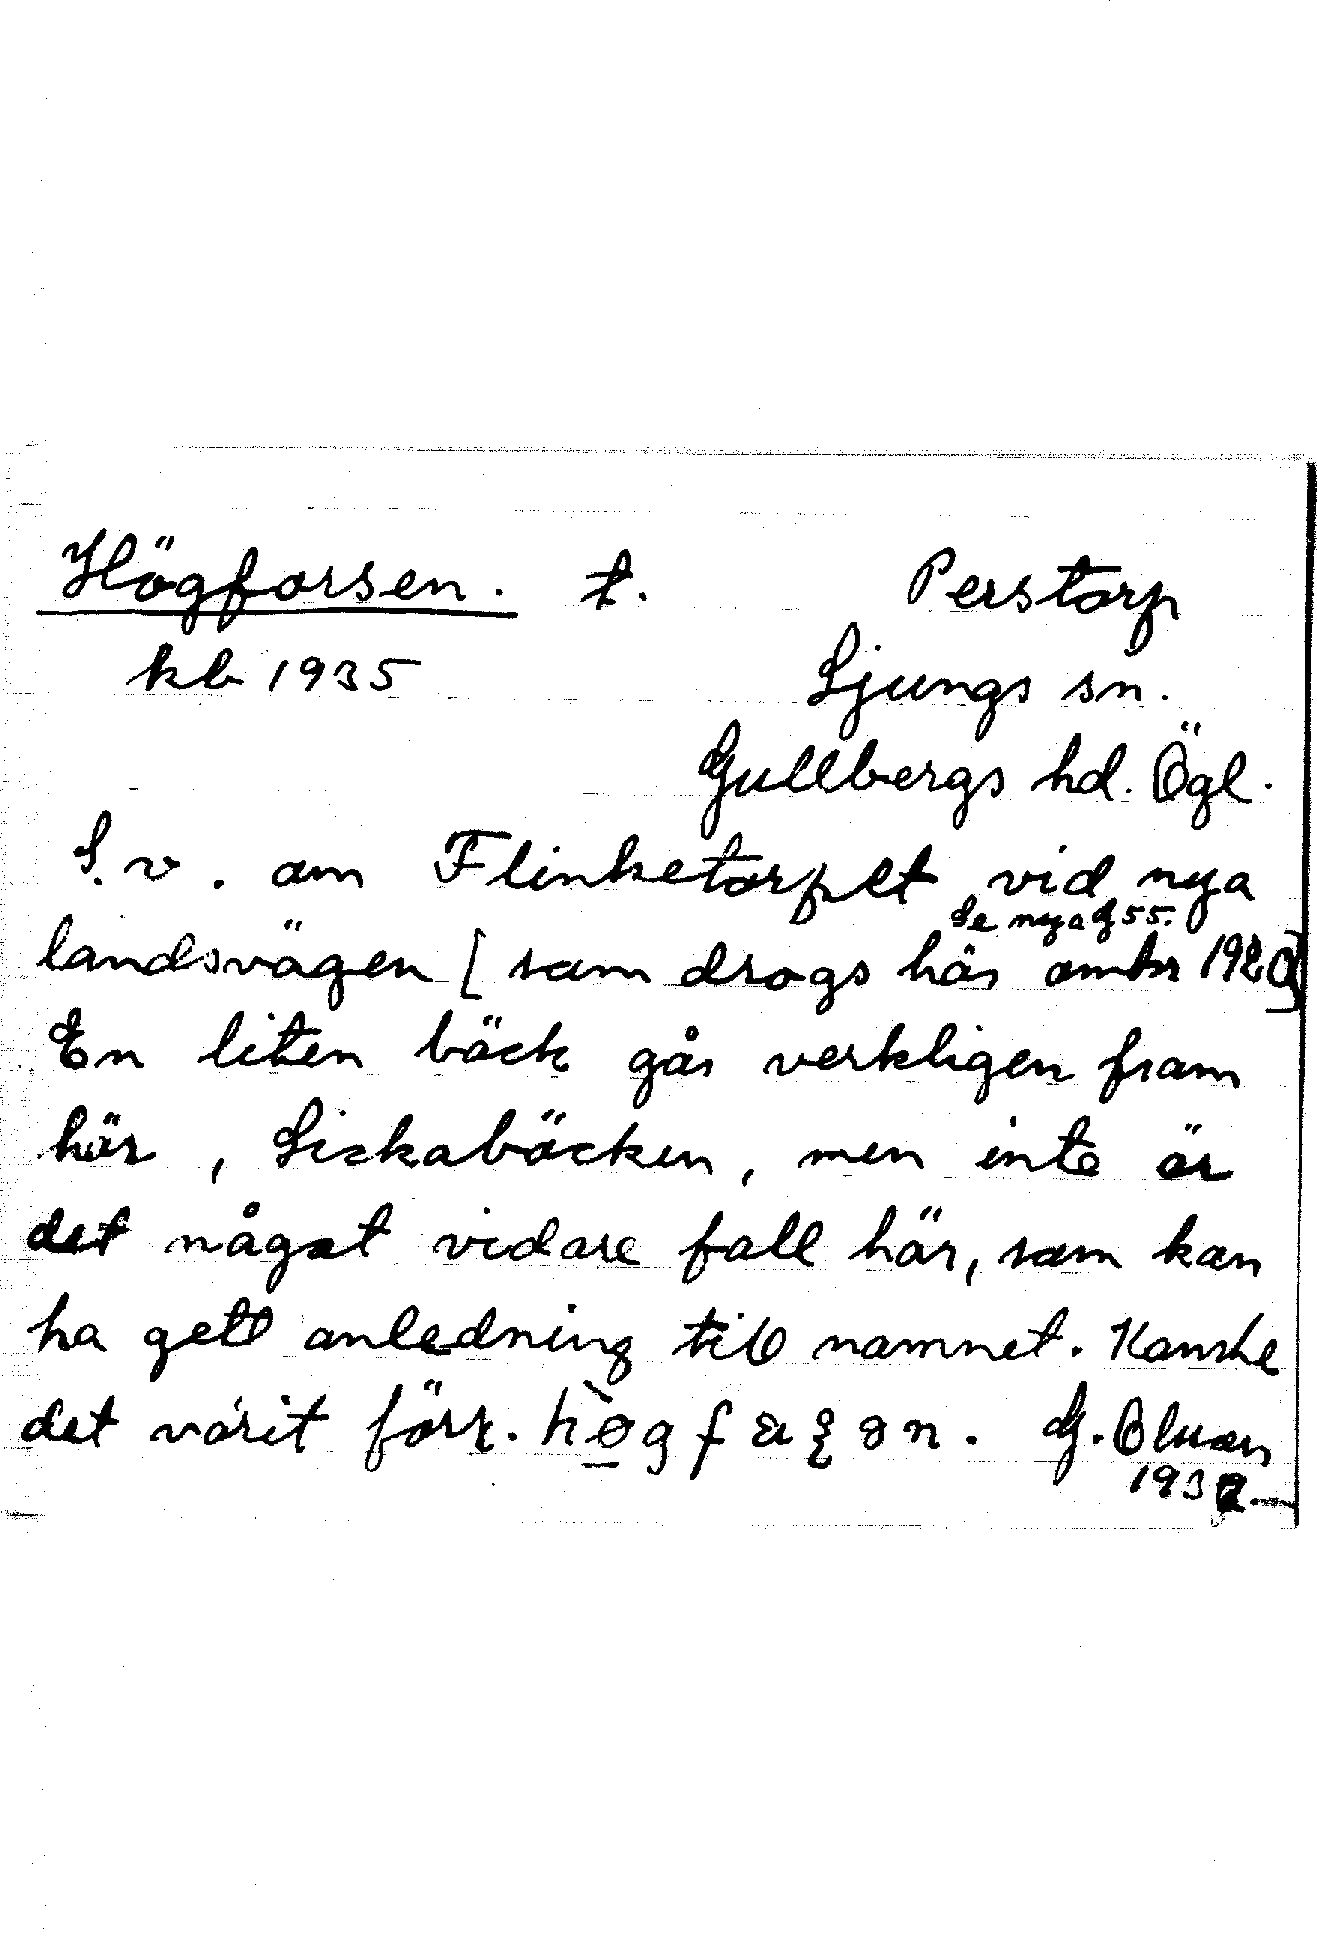 Högforsen. t. Perstorp
kb 1935 Ljungs sn.
Gullbergs hd. Ögl.
S.v. om Flinketorpet vid nya
de nya g 55.
landsvägen [som drogs här omkr 1920]
En liten bäck går verkligen fram
här, Sickabäcken, men inte är
det något vidare fall här, som kan
ha gett anledning till namnet. Kanske
det varit förr. G.
193